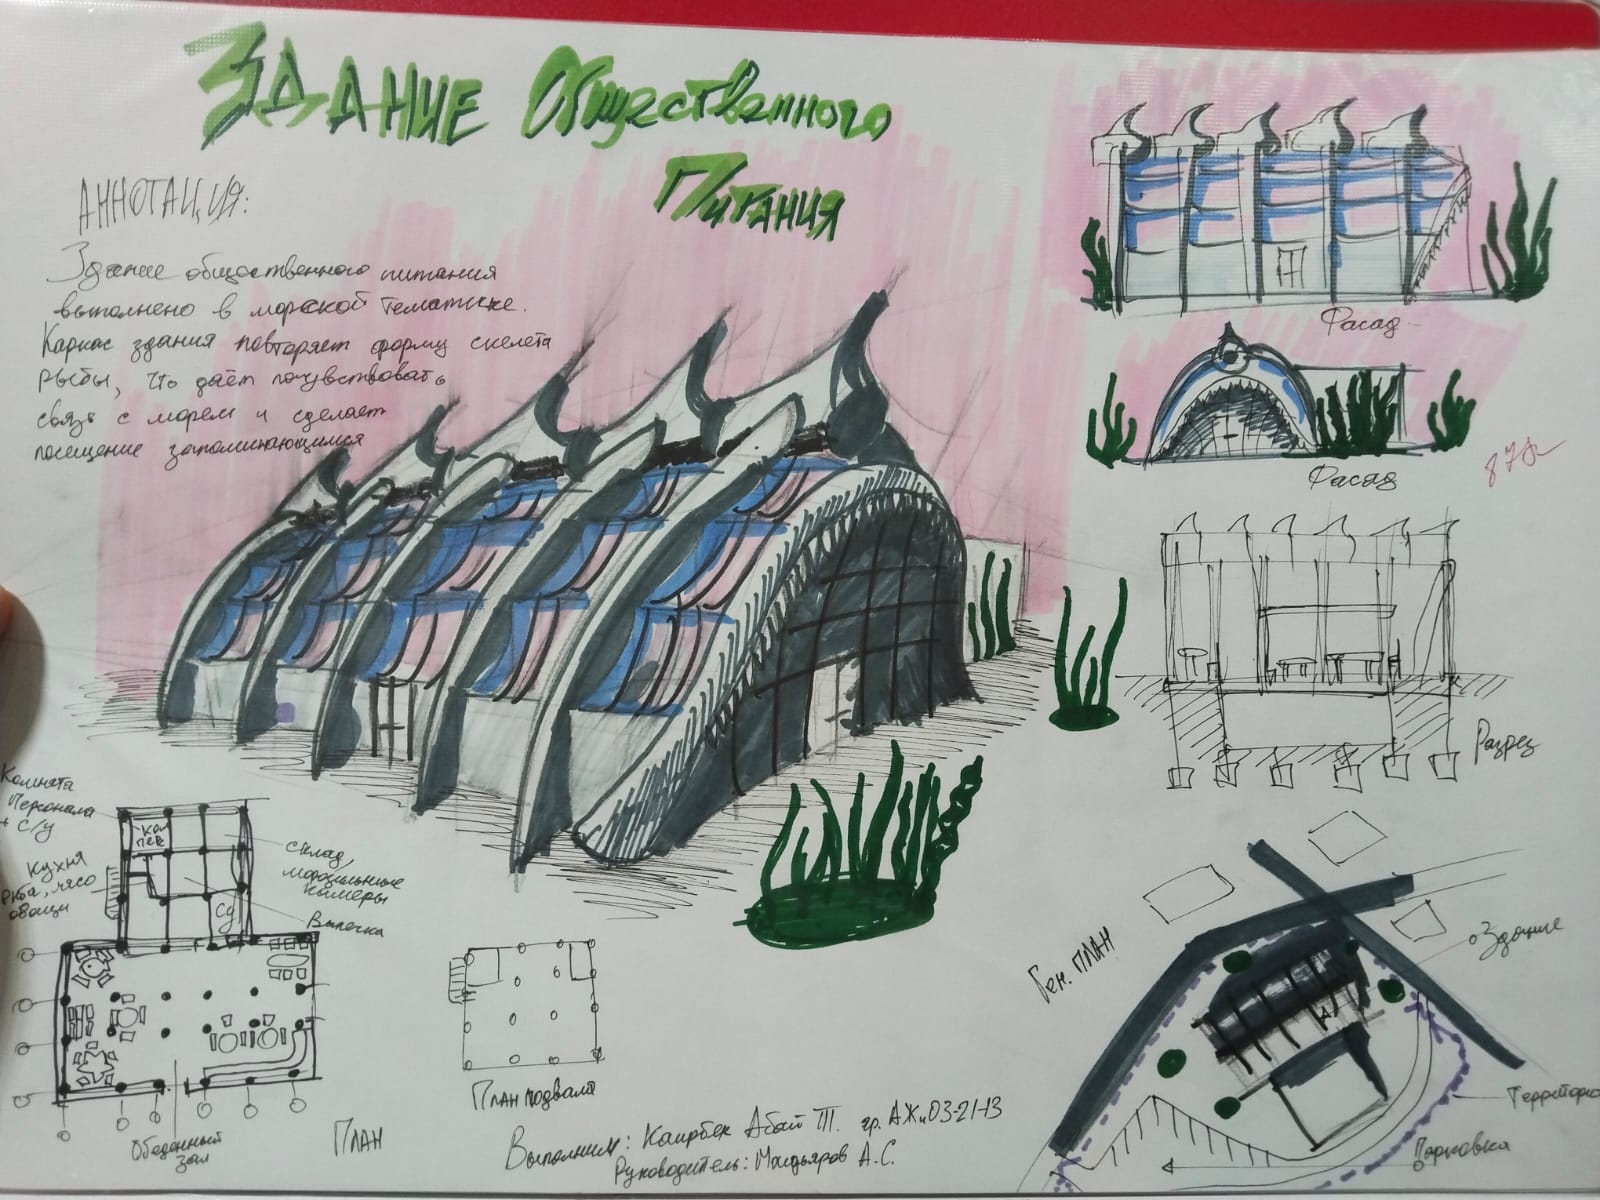 Здание Общественного
Питания
Аннотация:
Здание общественного питания
выполнено в морской тематике.
Каркас здания повторяет форму скелета
рыбы, что даёт почувствовать
связь с морем и сделает
посещение запоминающимся
Фасад
Фасад
Разрез
Комната
Персонала
+ С/у
Кухня
рыба, мясо
овощи
склад,
морозильные
камеры
Выпечка
Обеденный
зал
План
План подвала
Ген. План
Здание
Территория
Парковка
Выполнил: Каирбек Абай Т. гр. АЖ 03-21-13
Руководитель: А.С.